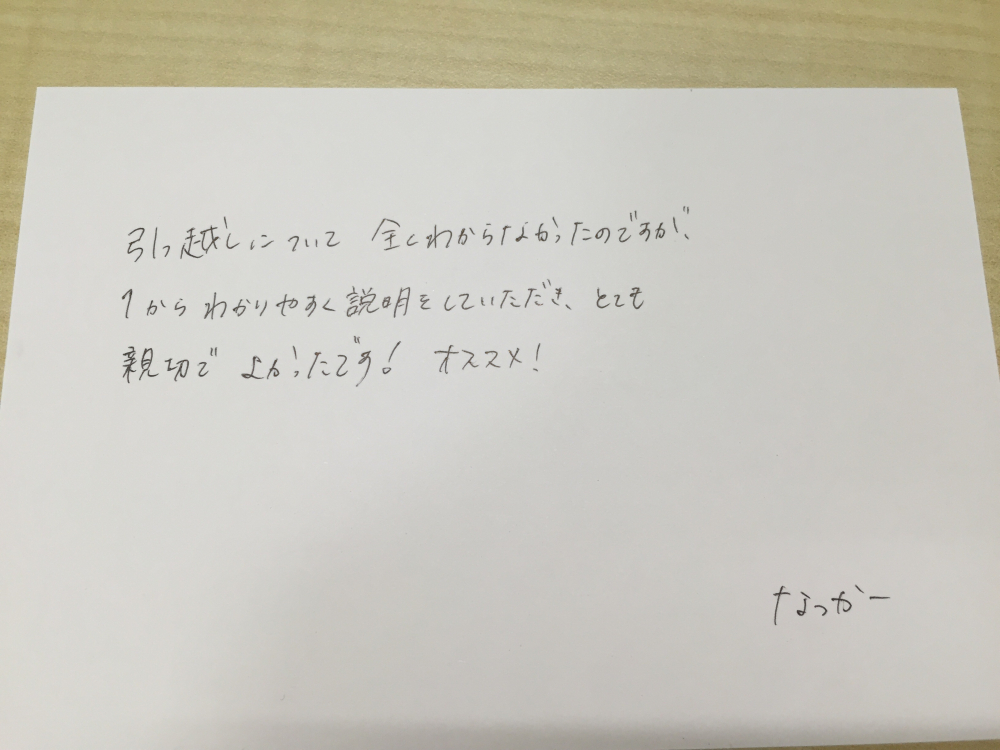 引っ越しについて 全くわからなかったのですが、
1からわかりやすく説明をしていただき、とても
親切で よかったです! オススメ!
なっかー